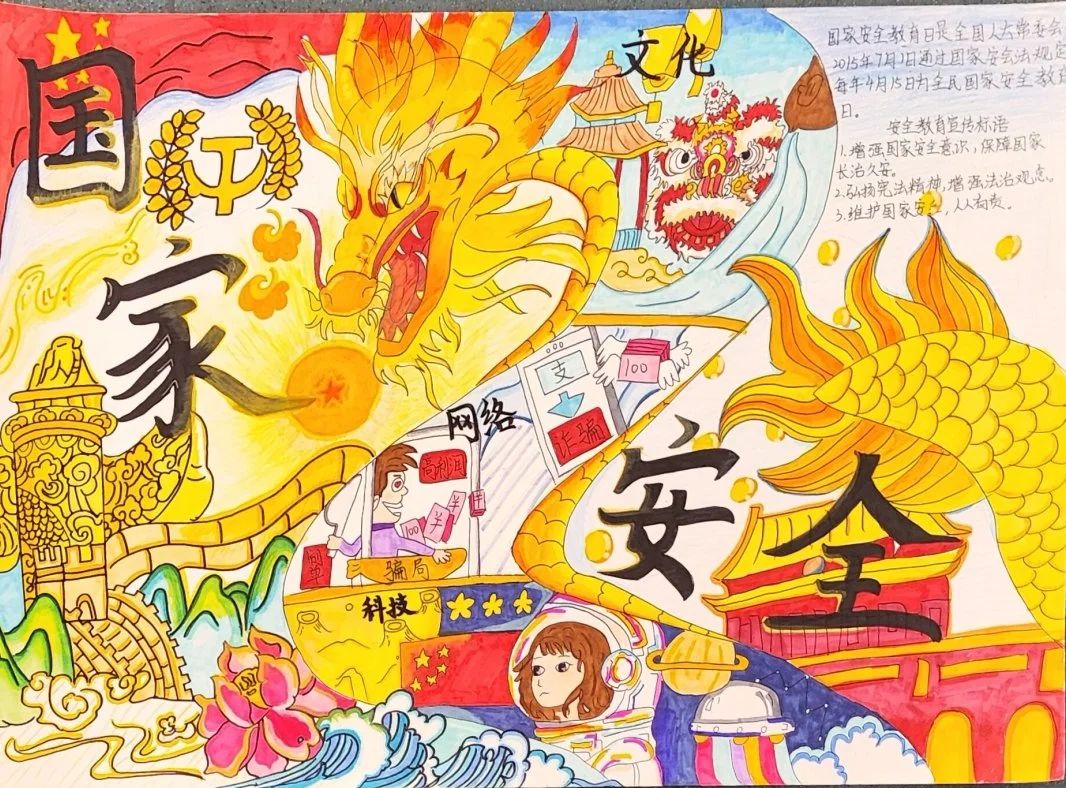 国家
安全
文化
国家安全教育日是全国人大常委会
2015年7月1日通过国家安全法规定
每年4月15日为全民国家安全教育
日。
安全教育宣传标语
1.增强国家安全意识，保障国家
长治久安。
2.弘扬宪法精神，增强法治观念。
3.维护国家安全，人人有责。
网络
支
100
诈骗
高利润
100
骗局
科技